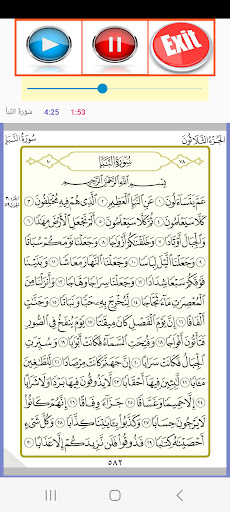 Exit
سورة النبأ 4:25 1:53
سُورَةُ النَّبَإِ الجُزْءُ الثَّلَاثُونَ
٤٠ سُورَةُ النَّبَإِ ٧٨
بِسْمِ اللَّهِ الرَّحْمَٰنِ الرَّحِيمِ
عَمَّ يَتَسَاءَلُونَ ١ عَنِ النَّبَإِ الْعَظِيمِ ٢ الَّذِي هُمْ فِيهِ مُخْتَلِفُونَ ٣
كَلَّا سَيَعْلَمُونَ ٤ ثُمَّ كَلَّا سَيَعْلَمُونَ ٥ أَلَمْ نَجْعَلِ الْأَرْضَ مِهَادًا ٦
وَالْجِبَالَ أَوْتَادًا ٧ وَخَلَقْنَاكُمْ أَزْوَاجًا ٨ وَجَعَلْنَا نَوْمَكُمْ سُبَاتًا
٩ وَجَعَلْنَا اللَّيْلَ لِبَاسًا ١٠ وَجَعَلْنَا النَّهَارَ مَعَاشًا ١١ وَبَنَيْنَا
فَوْقَكُمْ سَبْعًا شِدَادًا ١٢ وَجَعَلْنَا سِرَاجًا وَهَّاجًا ١٣ وَأَنْزَلْنَا مِنَ
الْمُعْصِرَاتِ مَاءً ثَجَّاجًا ١٤ لِنُخْرِجَ بِهِ حَبًّا وَنَبَاتًا ١٥ وَجَنَّاتٍ
أَلْفَافًا ١٦ إِنَّ يَوْمَ الْفَصْلِ كَانَ مِيقَاتًا ١٧ يَوْمَ يُنْفَخُ فِي الصُّورِ
فَتَأْتُونَ أَفْوَاجًا ١٨ وَفُتِحَتِ السَّمَاءُ فَكَانَتْ أَبْوَابًا ١٩ وَسُيِّرَتِ
الْجِبَالُ فَكَانَتْ سَرَابًا ٢٠ إِنَّ جَهَنَّمَ كَانَتْ مِرْصَادًا ٢١ لِلطَّاغِينَ
مَآبًا ٢٢ لَابِثِينَ فِيهَا أَحْقَابًا ٢٣ لَا يَذُوقُونَ فِيهَا بَرْدًا وَلَا شَرَابًا
٢٤ إِلَّا حَمِيمًا وَغَسَّاقًا ٢٥ جَزَاءً وِفَاقًا ٢٦ إِنَّهُمْ كَانُوا
لَا يَرْجُونَ حِسَابًا ٢٧ وَكَذَّبُوا بِآيَاتِنَا كِذَّابًا ٢٨ وَكُلَّ شَيْءٍ
أَحْصَيْنَاهُ كِتَابًا ٢٩ فَذُوقُوا فَلَنْ نَزِيدَكُمْ إِلَّا عَذَابًا ٣٠
٥٨٢